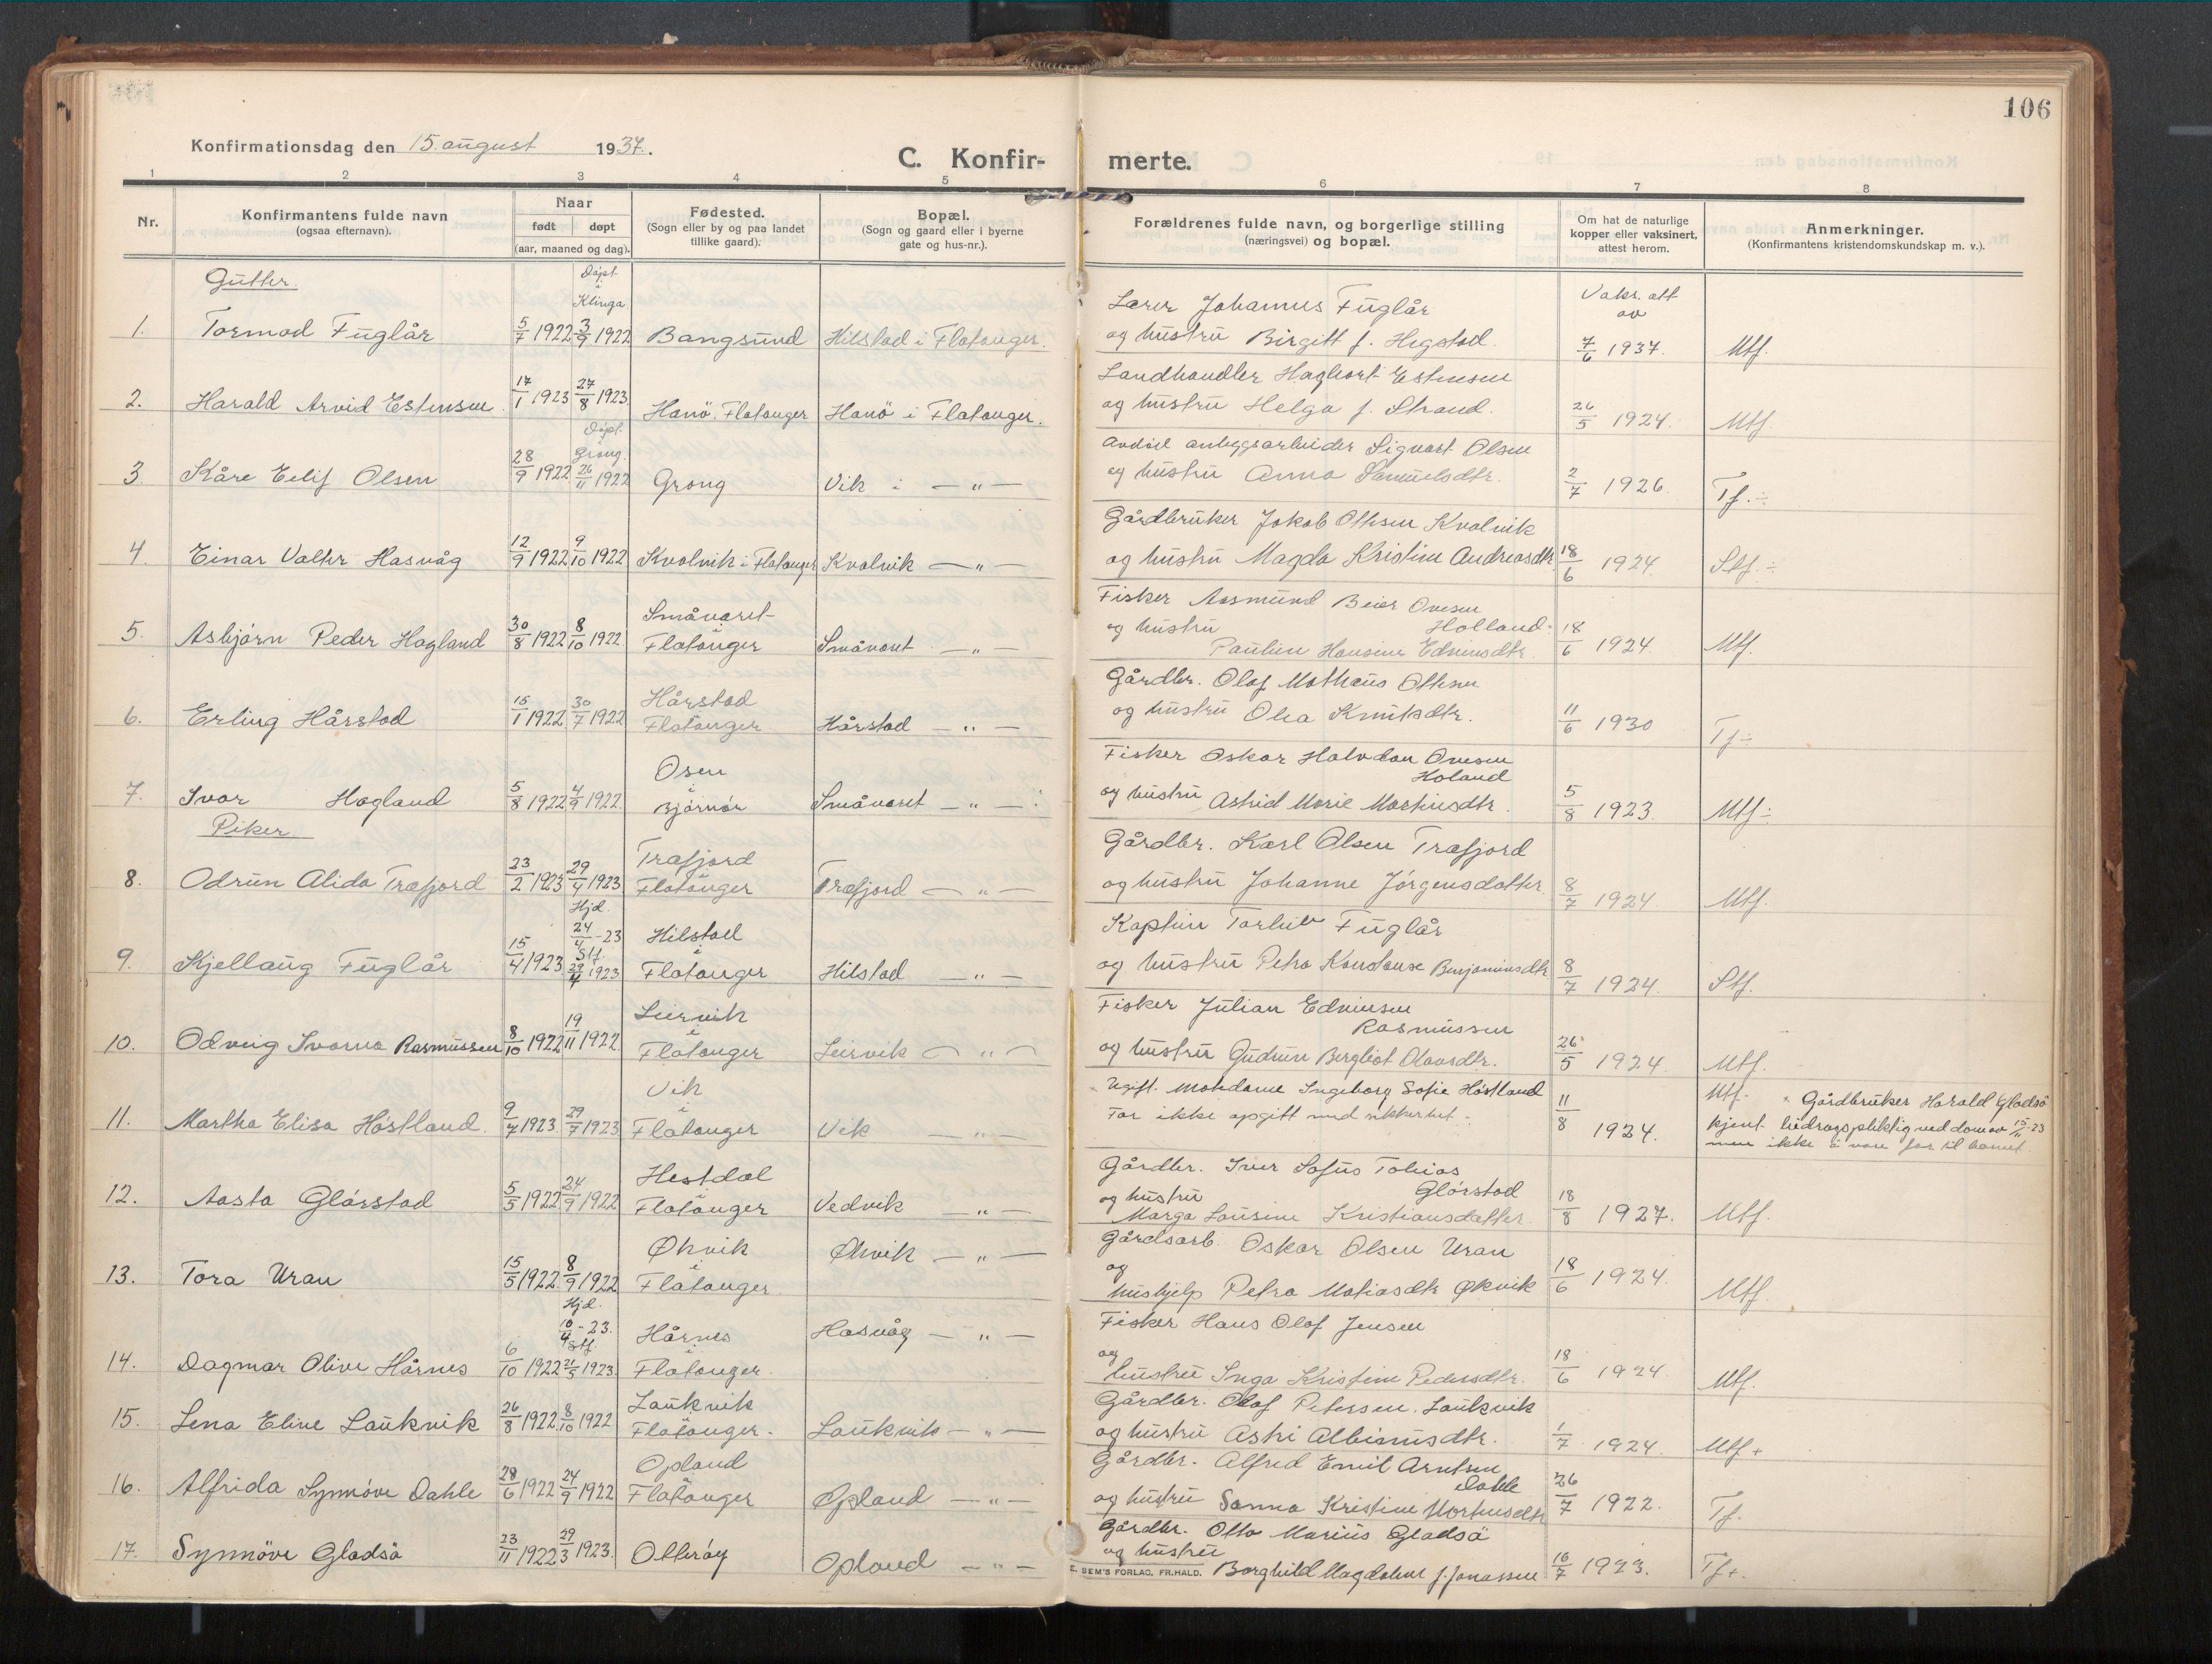 106
Konfirmationsdag den 15. august 1937.
C. Konfir-
merte.
1 2 3 4 5 6 7 8
Nr.
Konfirmantens fulde navn
(ogsaa efternavn).
Naar
født døpt
(aar, maaned og dag).
Fødested.
(Sogn eller by og paa landet
tillike gaard).
Bopæl.
(Sogn og gaard eller i byerne
gate og hus-nr.).
Forældrenes fulde navn, og borgerlige stilling
(næringsvei) og bopæl.
Om hat de naturlige
kopper eller vaksinert,
attest herom.
Anmerkninger.
(Konfirmantens kristendomskundskap m. v.).
Gutter.
Døpt
i
Klinga
Vaks. att
av
Lærer Johannes Fuglår
1. Tormod Fuglår 5/7 1922 3/9 1922 Bangsund Hilstad i Flatanger. og hustru Birgitt f. Hegstad. 7/6 1937. Mtf.
Landhandler Hagbart Estensen
2. Harald Arvid Estensen 17/1 1923 27/8 1923 Hanö. Flatanger Hanö i Flatanger. og hustru Helga f. Strand. 26/5 1924. Mtf.
Døpt. i Grong.
Avdöd anleggsarbeider Sigvart Olsen
3. Kåre Eilif Olsen 28/9 1922 26/11 1922 Grong Vik i — " — og hustru Anna Samuelsdtr. 2/7 1926. Tf. ÷
Gårdbruker Jakob Ottesen Kvalvik
4. Einar Valter Hasvåg 12/9 1922 9/10 1922 Kvalvik i Flatanger Kvalvik — " — og hustru Magda Kristine Andreasdtr. 18/6 1924. Stf. ÷
Fisker Aasmund Beier Ovesen
Småvaret
og hustru Holland.
5. Asbjørn Peder Hagland 30/8 1922 8/10 1922 Flatanger Småvaret — " — Hansine Edvinsdtr. 18/6 1924. Mtf.
Gårdbr. Olaf Matheus Ottesen
Hårstad
6. Erling Hårstad 15/1 1922 30/7 1922 Flatanger Hårstad — " — og hustru Olea Knutsdtr. 11/6 1930 Tf ÷
Fisker Oskar Halvdan Ovesen
Holand
Osen
i
7. Ivar Hagland 5/8 1922 4/9 1922. Bjørnør Småvaret — " — og hustru Astrid Marie Martinsdtr. 5/8 1923. Mtf ÷
Piker
Gårdbr. Karl Olsen Træfjord
Træfjord
i
8. Odrun Alida Træfjord 23/2 1923 29/4 1923 Flatanger Træfjord — " — og hustru Johanne Jörgensdatter. 8/7 1924. Mtf.
Hjd.
24/4 - 23
Stf.
Kaptein Torleiv Fuglår
Hilstad
i
9. Kjellaug Fuglår 15/4 1923 29/4 1923 Flatanger Hilstad — " — og hustru Petra Konstanse Benjaminsdtr. 8/7 1924. Stf.
Fisker Julian Edvinsen
Rasmussen
Leirvik
i
10. Odveig Ivarna Rasmussen 8/10 1922 19/11 1922. Flatanger Leirvik — " — og hustru Gudrun Bergliot Olavsdtr. 26/5 1924. Mtf.
Vik
i
Ugift. Ingeborg Sofie Höstland
Far ikke opgitt med sikkerhet.
11. Martha Elisa Höstland. 9/7 1923. 29/7 1923 Flatanger Vik — " — 11/8 1924. Mtf. × Gårdbruker Harald Gladsö
kjent bidragspliktig ved dom av 15/11 - 23
men ikke å være far til barnet.
Gårdbr. Iver Sofus Tobias
Glörstad
Hestdal
i
12. Aasta Glørstad 5/5 1922 24/9 1922 Flatanger Vedvik — " — og hustru
Marga Lousine Kristiansdatter. 18/8 1927. Mtf.
Gårdsarb. Oskar Olsen Uran
Økvik
i
13. Tora Uran 15/5 1922. 8/9 1922 Flatanger. Økvik — " — og
hushjelp Petra Matiasdtr Økvik 18/6 1924. Mtf.
Hjd.
10/4 - 23.
Stf.
Fisker Hans Olaf Jensen
Hårnes
i
14. Dagmar Olive Hårnes 6/10 1922 21/5 1923. Flatanger. Hasvåg — " — og
hustru Inga Kristine Pedersdtr. 18/6 1924. Mtf.
Gårdbr. Olaf Petersen Laukvik
Laukvik
i
15. Lena Eline Laukvik 26/8 1922 8/10 1922 Flatanger. Laukvik — " — og hustru Astri Albinusdtr. 1/7 1924. Mtf +
Gårdbr. Alfred Emil Arntsen
Dahle
Opland
i
16. Alfrida Synnöve Dahle 28/6 1922 24/9 1922 Flatanger Opland — " — og hustru Sanna Kristine Mortensdtr. 26/7 1922. Tf.
Gårdbr. Otto Marius Gladsö
og hustru
17. Synnöve Gladsö 23/11 1922 29/3 1923. Otterøy Opland — " — Borghild Magdalene f. Jonassen 16/7 1923. Tf +.
E. SEM'S FORLAG, FR.HALD.